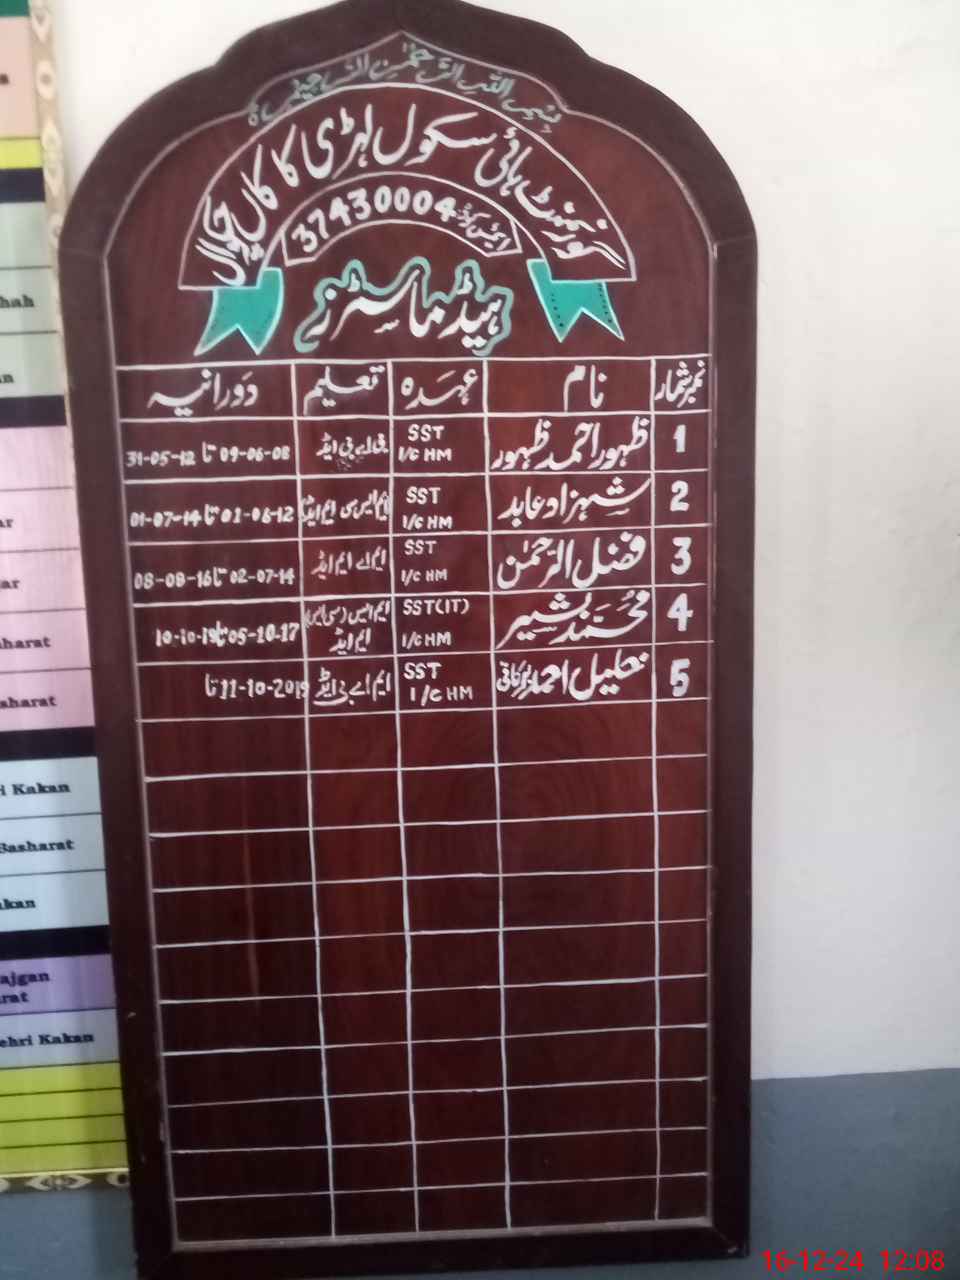 بسم اللہ الرحمٰن الرحیم
گورنمنٹ ہائی سکول لہڑی کاکاں چکوال
ایمس کوڈ 37430004
ہیڈ ماسٹرز
نمبر شمار نام عہدہ تعلیم دورانیہ
1 ظہور احمد ظہور SST I/C HM بی اے بی ایڈ 09-06-08 تا 31-05-12
2 شہزاد عابد SST I/C HM ایم ایس سی ایم ایڈ 01-06-12 تا 01-07-14
3 فضل الرحمٰن SST I/C HM ایم اے ایم ایڈ 02-07-14 تا 08-08-16
4 محمد بشیر SST(IT) I/C HM ایم ایس (سی ایس) ایم ایڈ 05-10-17 تا 10-10-19
5 خلیل احمد برکاتی SST I/C HM ایم اے بی ایڈ 11-10-2019 تا
hah
n
ar
ar
harat
sharat
i Kakan
Basharat
akan
ajgan
rat
ehri Kakan
16-12-24 12:08